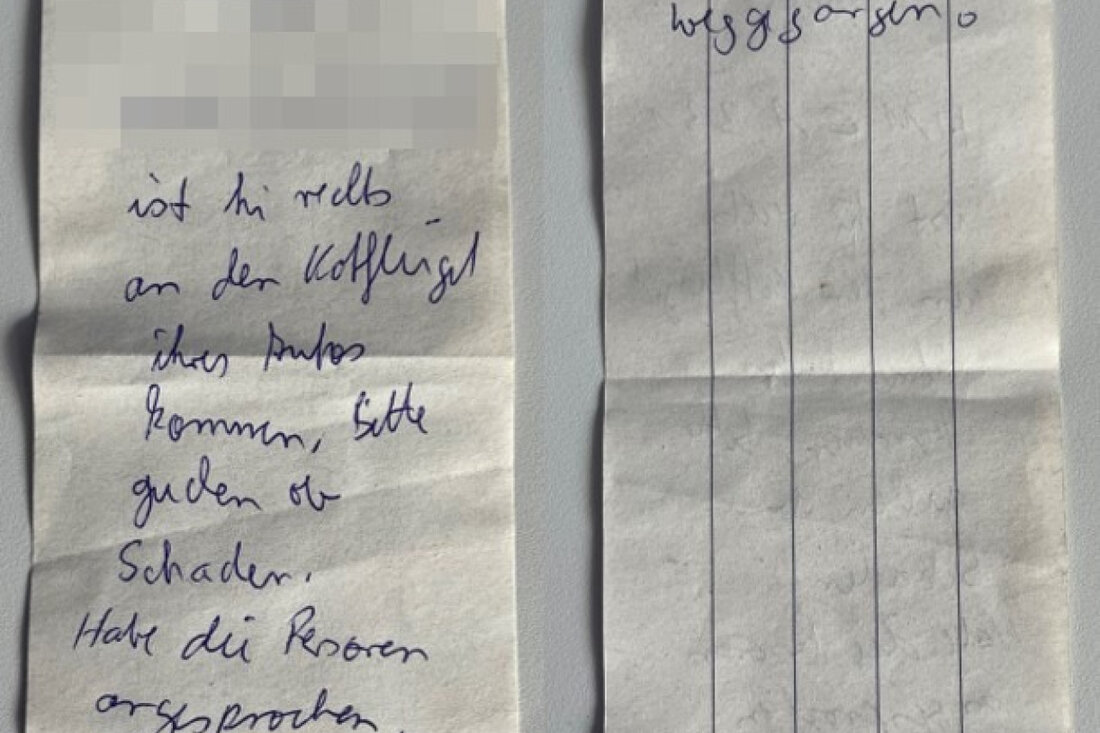 ist hi rechts
an den Kotflügel
ihres Autos
kommen, bitte
gucken ob
Schaden.
Habe die Personen
angesprochen,
weggegangen.